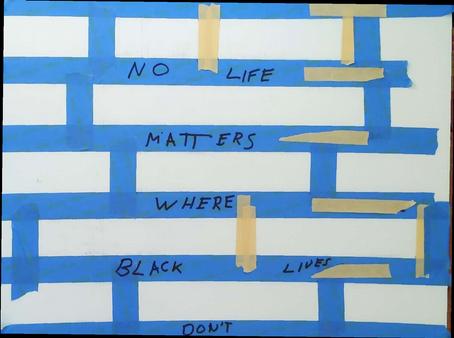 NO LIFE
MATTERS
WHERE
BLACK LIVES
DON'T